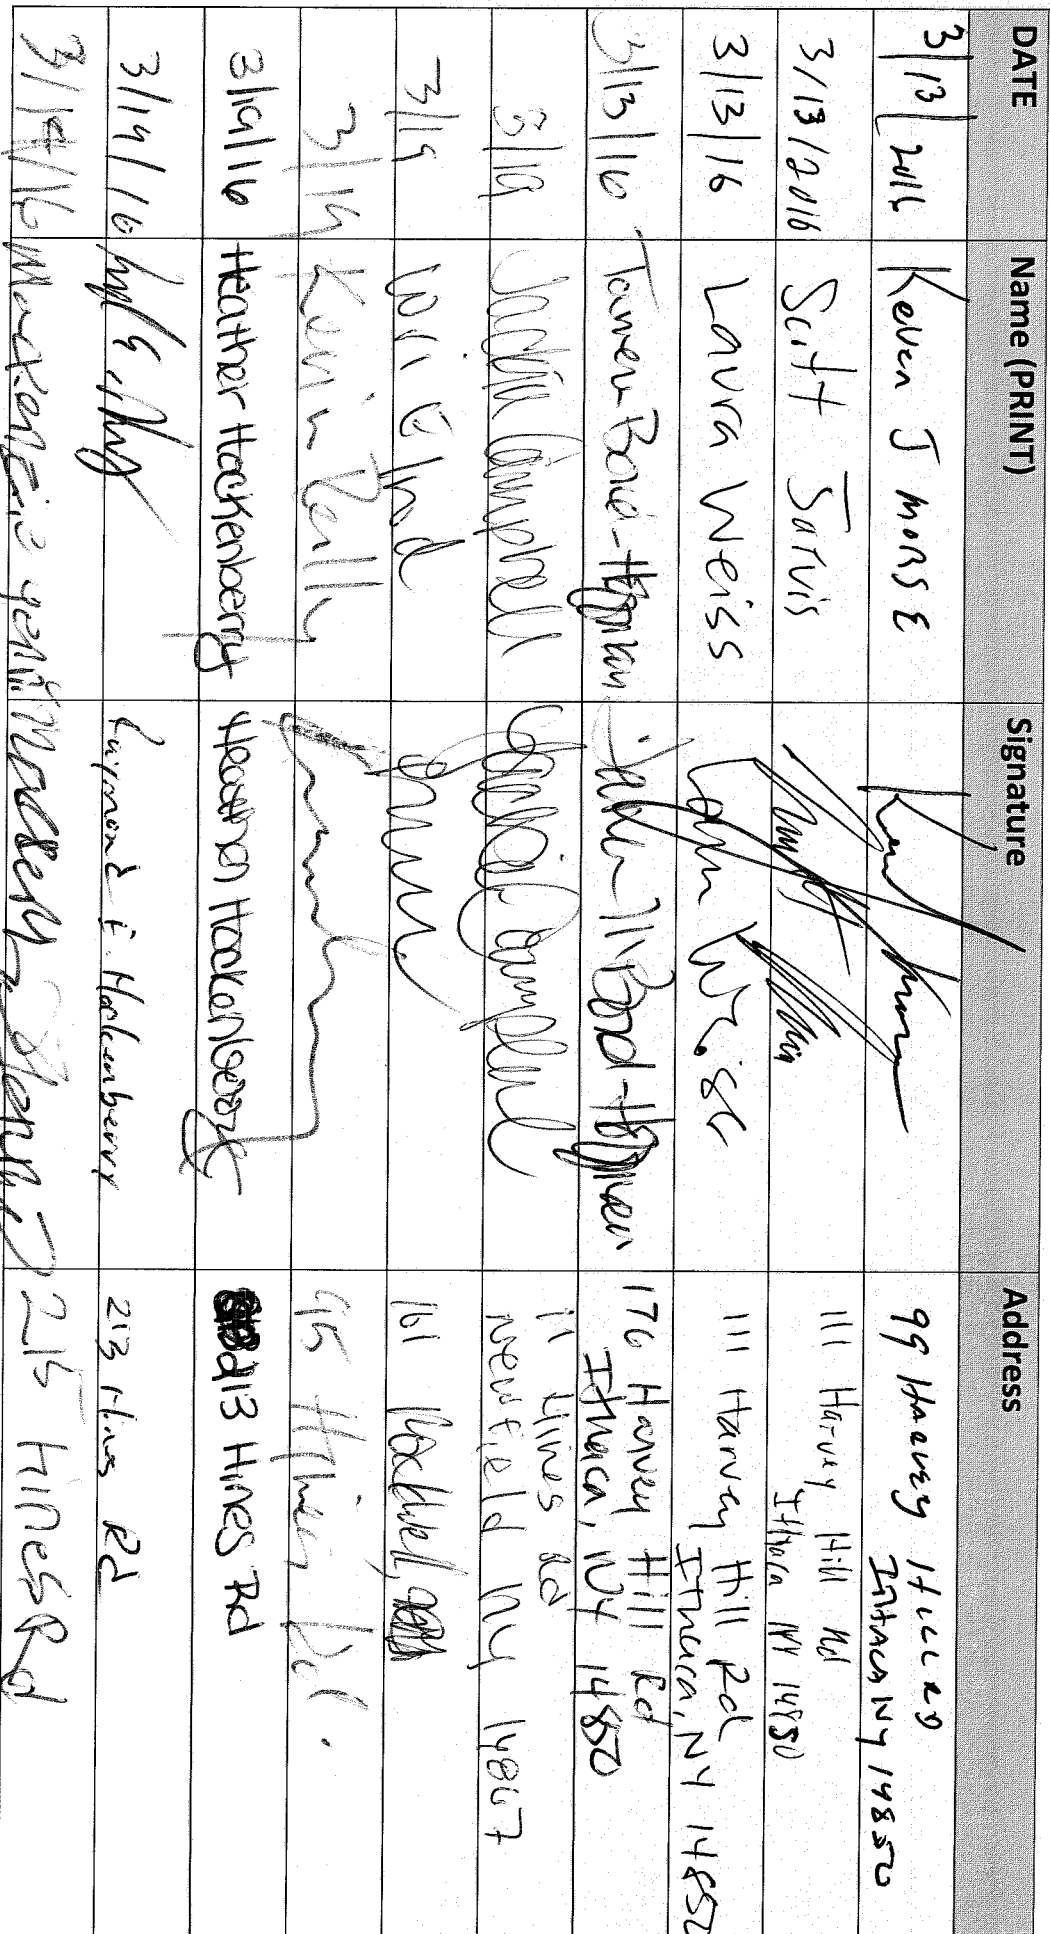 DATE Name (PRINT) Signature Address
3/13/2016 Keven J MORSE 99 HARVEY HILL RD
ITHACA NY 14850
3/13/2016 Scott Jarvis 111 Harvey Hill Rd
Ithaca NY 14850
3/13/16 Laura Weiss Laura Weiss 111 Harvey Hill Rd
Ithaca, NY 14850
3/13/16 Bond- 176 Harvey Hill Rd
Ithaca, NY 14850
3/19 Jackie Campbell Jackie Campbell 11 Hines Rd
Newfield NY 14867
3/19 Lori 161
3/19 Kevin 95 Hines Rd.
3/19/16 Heather Hockenberry Heather Hockenberry 213 Hines Rd
3/19/16 Raymond E. Hockenberry 213 Hines Rd
3/19/16 Mackenzie 215 Hines Rd